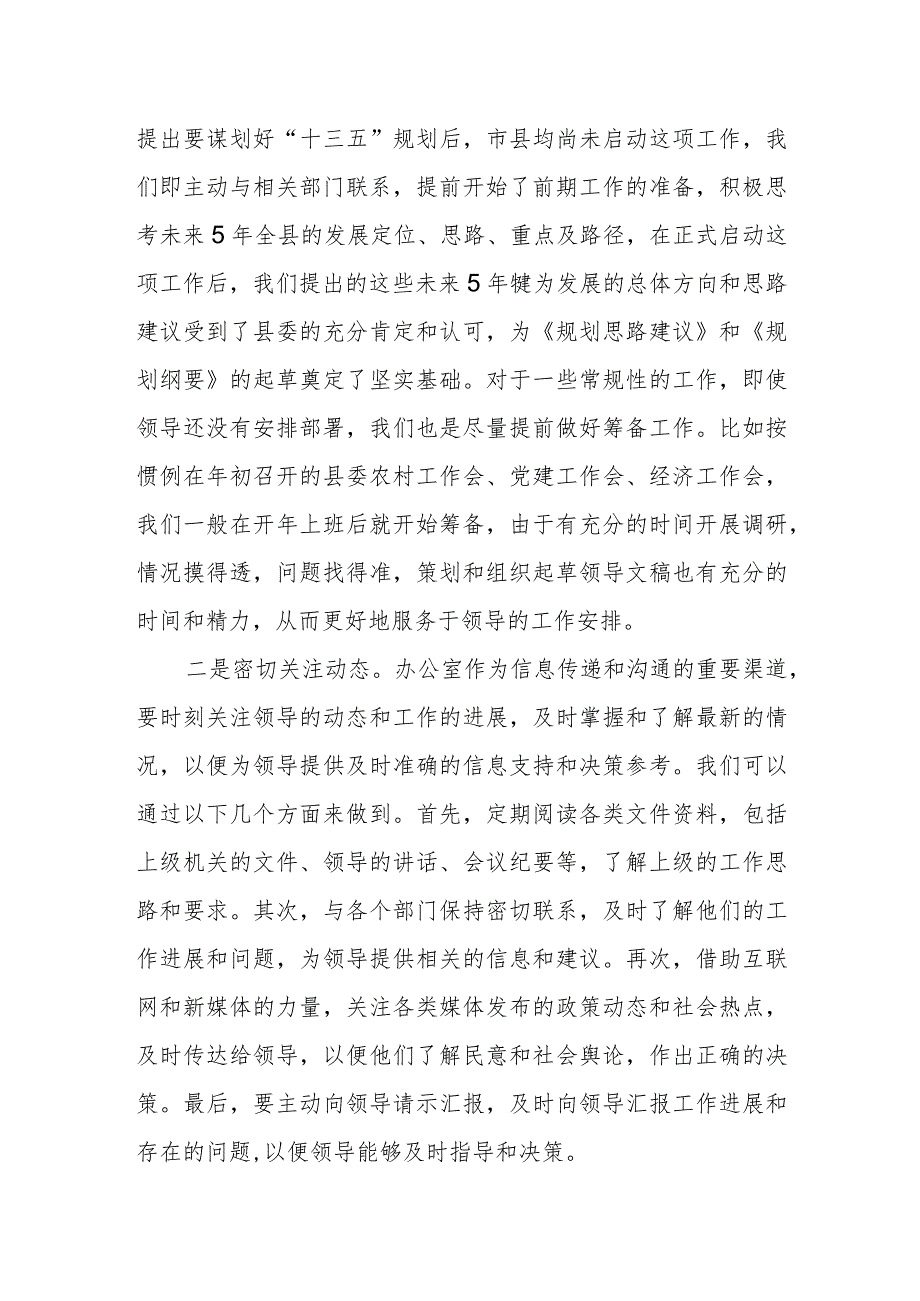 提出要谋划好“十三五”规划后，市县均尚未启动这项工作，我
们即主动与相关部门联系，提前开始了前期工作的准备，积极思
考未来5年全县的发展定位、思路、重点及路径，在正式启动这
项工作后，我们提出的这些未来5年犍为发展的总体方向和思路
建议受到了县委的充分肯定和认可，为《规划思路建议》和《规
划纲要》的起草奠定了坚实基础。对于一些常规性的工作，即使
领导还没有安排部署，我们也是尽量提前做好筹备工作。比如按
惯例在年初召开的县委农村工作会、党建工作会、经济工作会，
我们一般在开年上班后就开始筹备，由于有充分的时间开展调研，
情况摸得透，问题找得准，策划和组织起草领导文稿也有充分的
时间和精力，从而更好地服务于领导的工作安排。
二是密切关注动态。办公室作为信息传递和沟通的重要渠道，
要时刻关注领导的动态和工作的进展，及时掌握和了解最新的情
况，以便为领导提供及时准确的信息支持和决策参考。我们可以
通过以下几个方面来做到。首先，定期阅读各类文件资料，包括
上级机关的文件、领导的讲话、会议纪要等，了解上级的工作思
路和要求。其次，与各个部门保持密切联系，及时了解他们的工
作进展和问题，为领导提供相关的信息和建议。再次，借助互联
网和新媒体的力量，关注各类媒体发布的政策动态和社会热点，
及时传达给领导，以便他们了解民意和社会舆论，作出正确的决
策。最后，要主动向领导请示汇报，及时向领导汇报工作进展和
存在的问题,以便领导能够及时指导和决策。